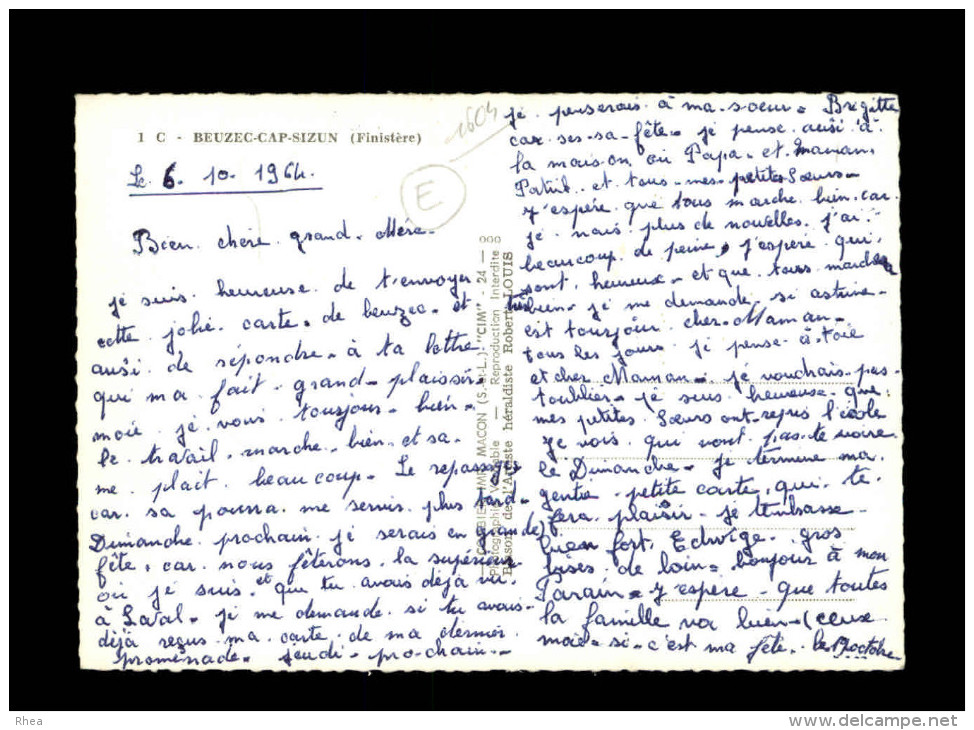 1 C - BEUZEC-CAP-SIZUN (Finistère)
1604
E
Le 6. 10. 1964.
Bien. chère. grand. Mère.
je suis heureuse de t'envoyer
cette jolie. carte. de beuzec. et
aussi de répondre. à ta lettre
qui ma fait. grand. plaisir.
moie je vous tousjours. bien.
le travail. marche. bien. et sa.
me. plait beaucoup. Le repassage
car sa pourra me servir plus tard.
Dimanche prochain je serais en grande
fête, car nous fêterons. la supérieur
où je suis. et que tu avais déjà vu
à Laval. je me demande. si tu avais.
déjà reçus. ma carte. de ma dernier
promenade. jeudi. pro-chain.
ETS COMBIER IMP. MACON (S.-et-L.) "CIM" - 24 -
Photographie Véritable — Reproduction Interdite
Blason de l'Artiste héraldiste Robert LOUIS
je penserais à ma soeur. Brigitte
car ses sa fête. je pense aussi à
la maison ou Papa. et Maman.
et tous. mes. petites Sœurs.
J'espére que tous marche bien. car.
je n'ais plus de nouvelles. j'ai
beaucoup de peine, j'espere qui.
sont. heureuse. et que tous marche
bien. je me demande. si
est tousjour cher. Maman.
tous les jours je pense. à. toie
et cher Maman. je vouchais. pas.
t'oublier. je suis heureuse. que.
mes petites. Sœurs ont. repris l'école
Je vois qui vont pas. te voire
le Dimanche. je termine ma.
gentie. petite carte, qui. te
fera plaisir. je t'enbasse.
bien fort. Edwige. gros
bises. de loin. bonjour à mon
Parain. J'espère. que toutes
la famille va bien. (ceux
mai. si. c'est ma fête. le 17 octobre.
Rhea
www.delcampe.net